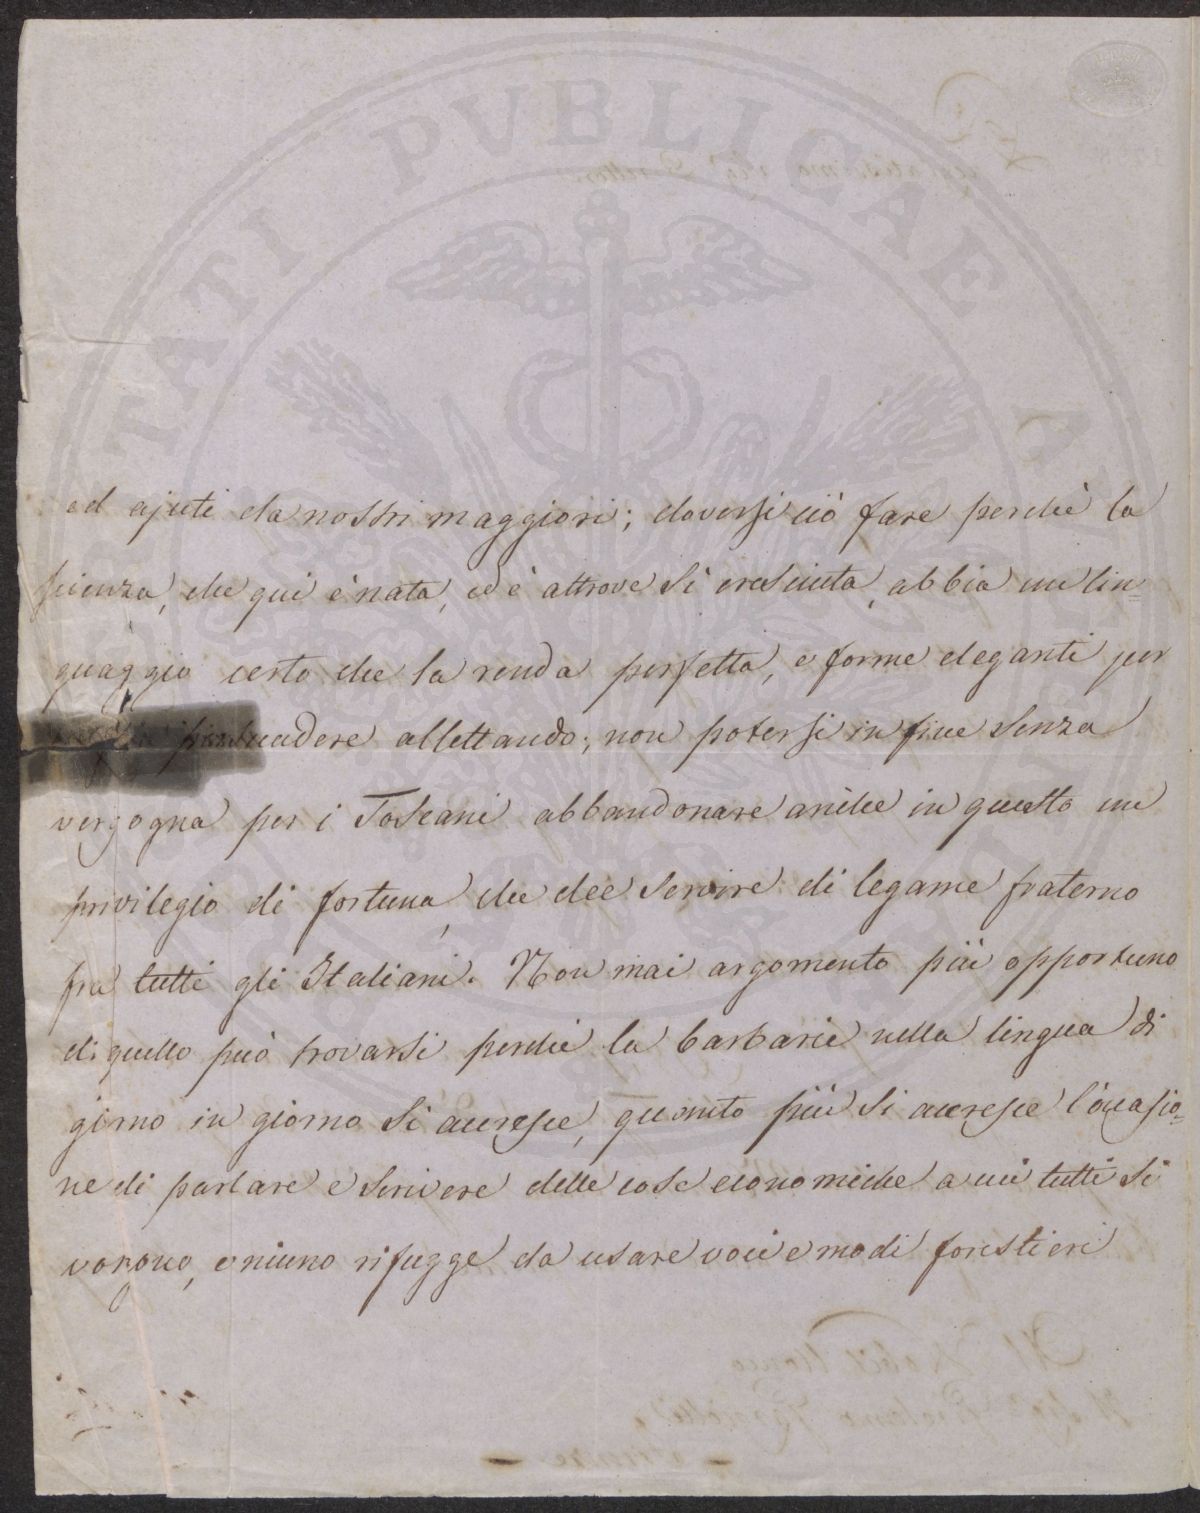 PUBLICAE
ed ajuti da nostri maggiori; doversi ciò fare perchè la
scienza, che qui è nata, ed è altrove sì cresciuta, abbia un lin=
guaggio certo che la renda perfetta, e forme eleganti per
persuadere allettando; non potersi in fine senza
vergogna per i Toscani abbandonare anche in questo un
privilegio di fortuna, che dee servire di legame fraterno
fra tutti gli Italiani. Non mai argomento più opportuno
di quello può trovarsi perchè la barbarie nella lingua di
giorno in giorno si accresce, quanto più si accresce l'occasio=
ne di parlare e scrivere delle cose economiche a cui tutti si
, e niuno rifugge da usare voci e modi forestieri